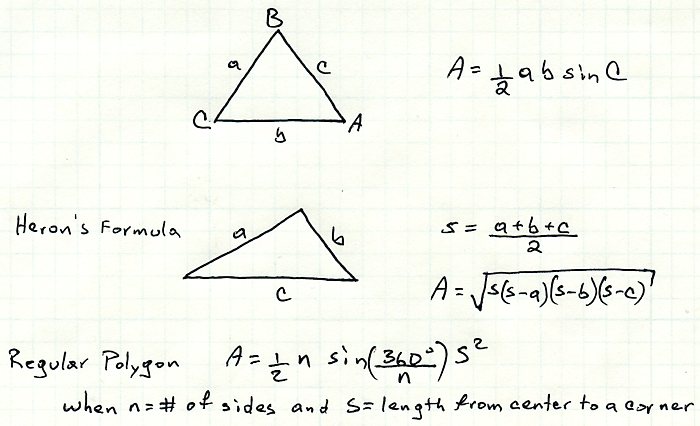 B
a c
C A
b
A = 1/2 a b sin C
Heron's Formula
a b
c
s = a+b+c / 2
A = √s(s-a)(s-b)(s-c)
Regular Polygon A = 1/2 n sin(360°/n) S²
when n = # of sides and S = length from center to a corner